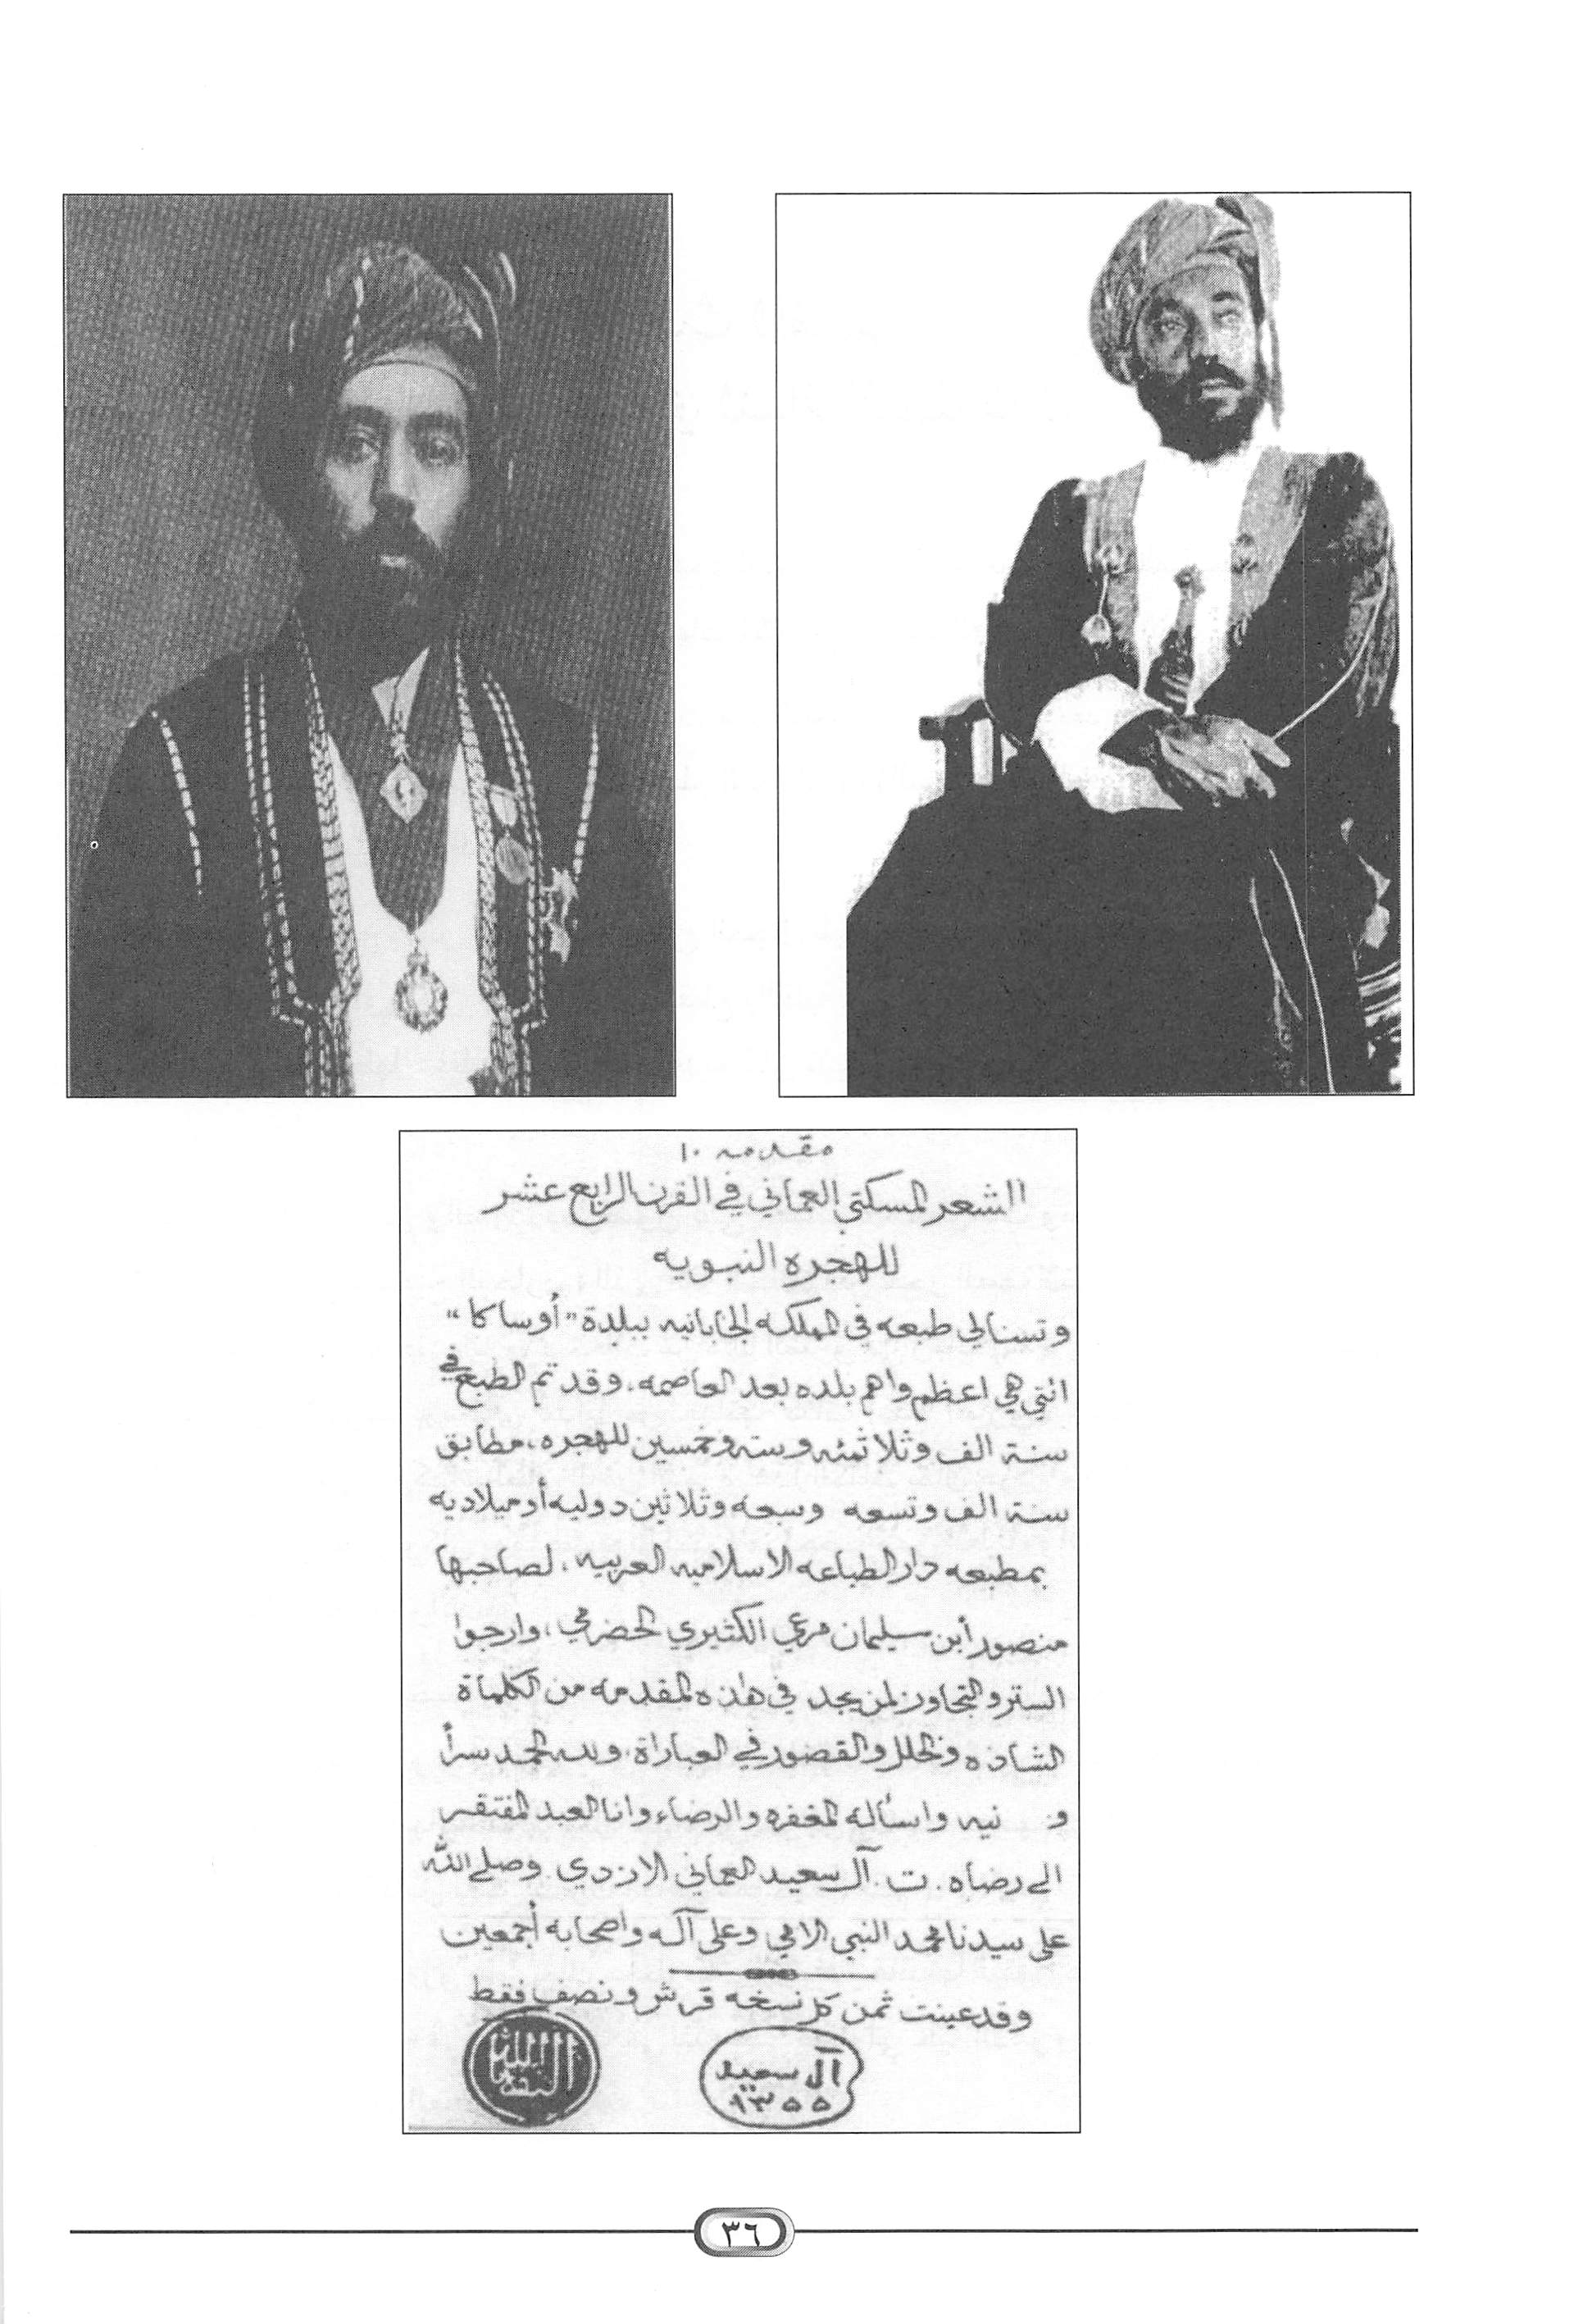 مقدمه ١٠
الشعر المسكتي العماني في القرن الرابع عشر
للهجره النبويه
وتسنا لي طبعه في المملكه الجابانيه ببلدة "أوساكا"
التي هي اعظم واهم بلده بعد العاصمه، وقد تم الطبع في
سنة الف وثلاثمئه وسته وخمسين للهجره، مطابق
سنة الف وتسعه وسبعه وثلاثين دوليه أو ميلاديه
بمطبعه دار الطباعه الاسلاميه العربيه، لصاحبها
منصور أبن سليمان مرعي الكثيري الحضرمي، وارجوا
الستر والتجاوز لمن يجد في هاذه المقدمه من الكلماة
الشاذه والخلل والقصور في العباراة، ولله الحمد سراً
و نيه واسأله المغفره والرضاء وانا العبد المفتقر
الى رضاه. ت. آل سعيد العماني الازدي وصلى الله
على سيدنا محمد النبي الامي وعلى آله واصحابه أجمعين
وقد عينت ثمن كل نسخه قرش ونصف فقط
آل سعيد
١٣٥٥
٣٦